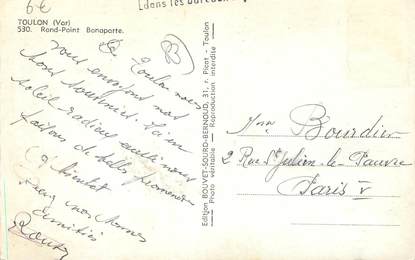 6€
dans les bureaux
TOULON (Var)
530. Rond-Point Bonaparte.
De Toulon nous
vous envoyons nos
bons souvenirs. Ici un
soleil radieux nous
faisons de belles promenades
A bientôt
nos bonnes
amitiés
Edition BOUVET-SOURD-BERNOUD, 31, r. Picot - Toulon
Photo véritable — Reproduction interdite
Bourdier
2 Rue St Julien-le-Pauvre
Paris V